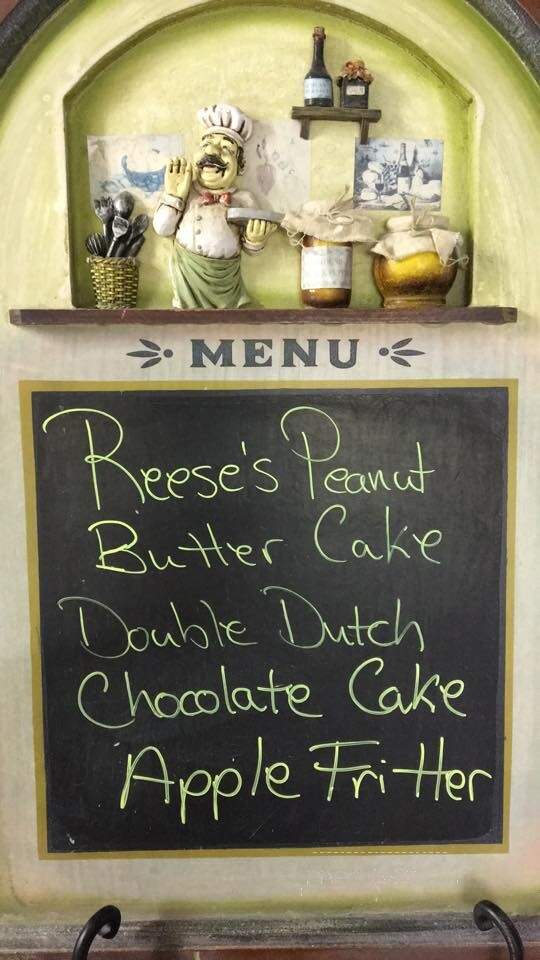 MENU
Reese's Peanut
Butter Cake
Double Dutch
Chocolate Cake
Apple Fritter